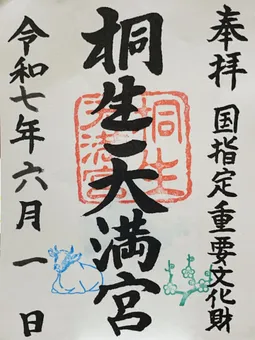 奉拝
国指定重要文化財
桐生天満宮
桐生天満宮
令和七年六月一日